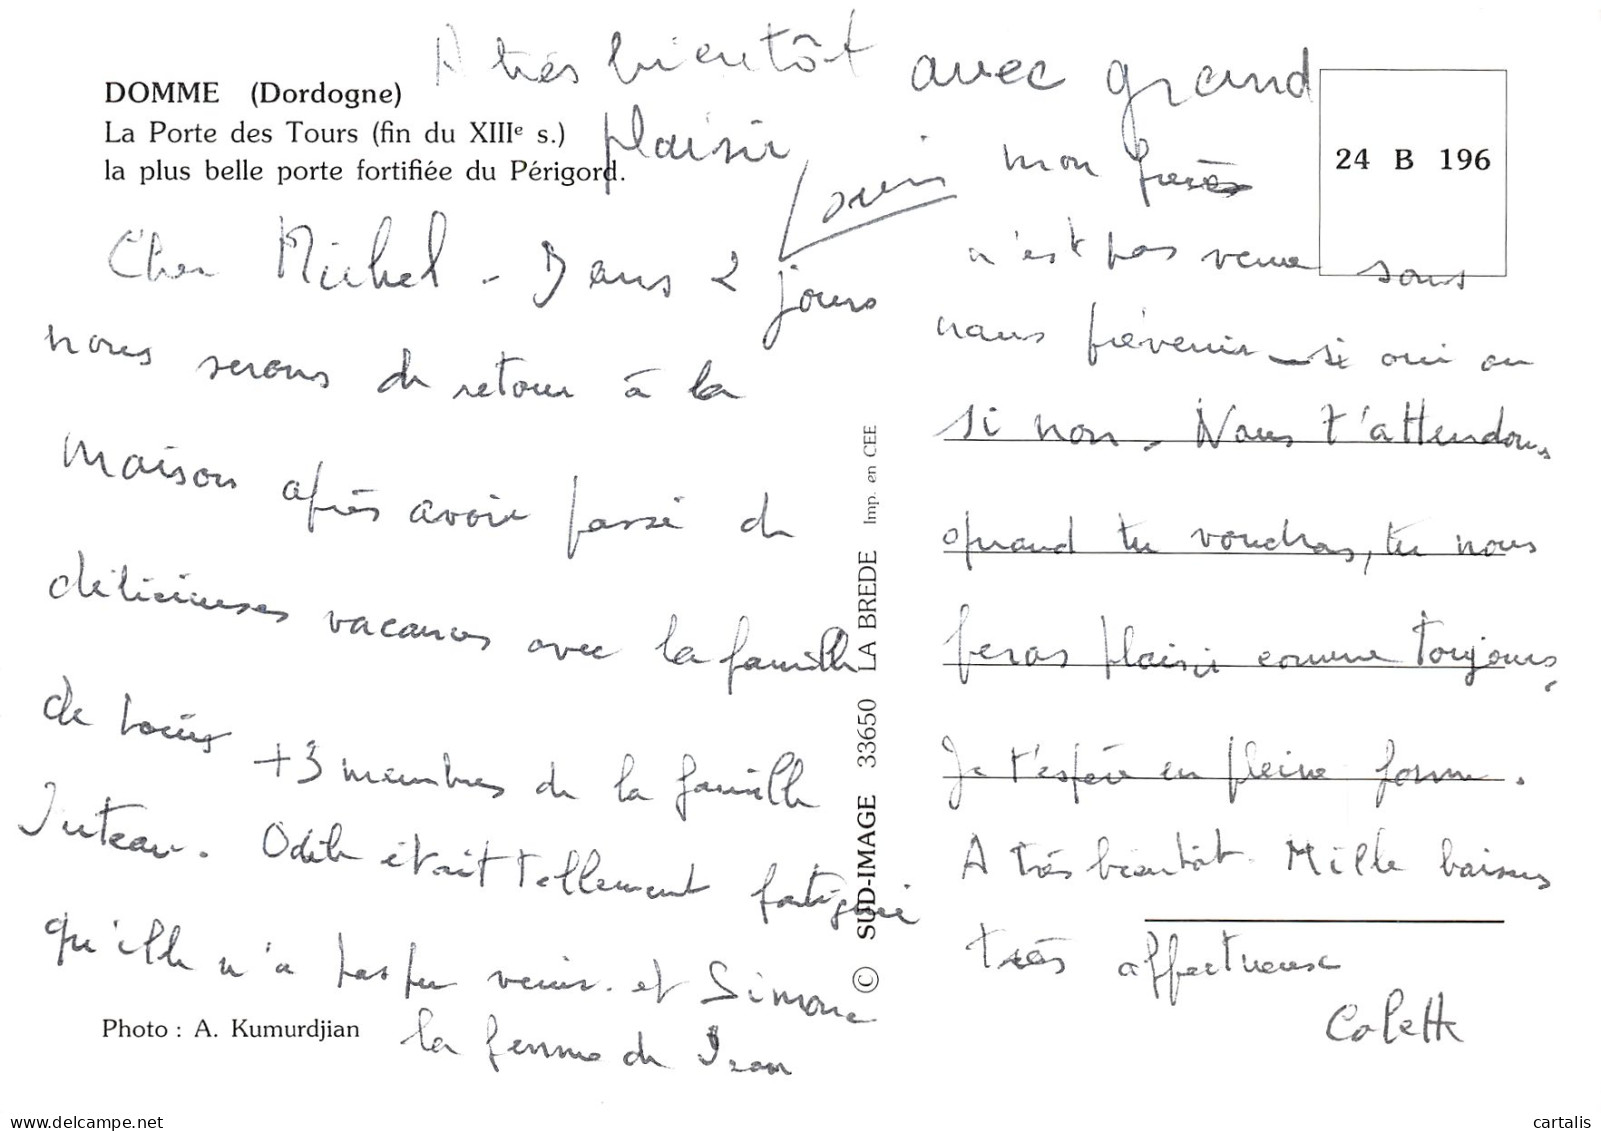 A très bientôt avec grand
plaisir
Louis
DOMME (Dordogne)
La Porte des Tours (fin du XIIIe s.)
la plus belle porte fortifiée du Périgord.
24 B 196
Cher Michel - Dans 2 jours
nous serons de retour à la
maison après avoir passé de
délicieuses vacances avec la famille
de + 3 membres de la famille
Juteau. Odile était tellement fatiguée
qu'elle n'a pas pu venir. et Simone
la femme de Jean
mon frère
n'est pas venue sans
nous prévenir - si oui ou
si non. Nous t'attendons
quand tu voudras, tu nous
feras plaisir comme toujours,
Je t'espère en pleine forme.
A très bientôt. Mille baisers
très affectueux
Colette
Photo : A. Kumurdjian
© SUD-IMAGE 33650 LA BREDE Imp. en CEE
cartalis
delcampe.net